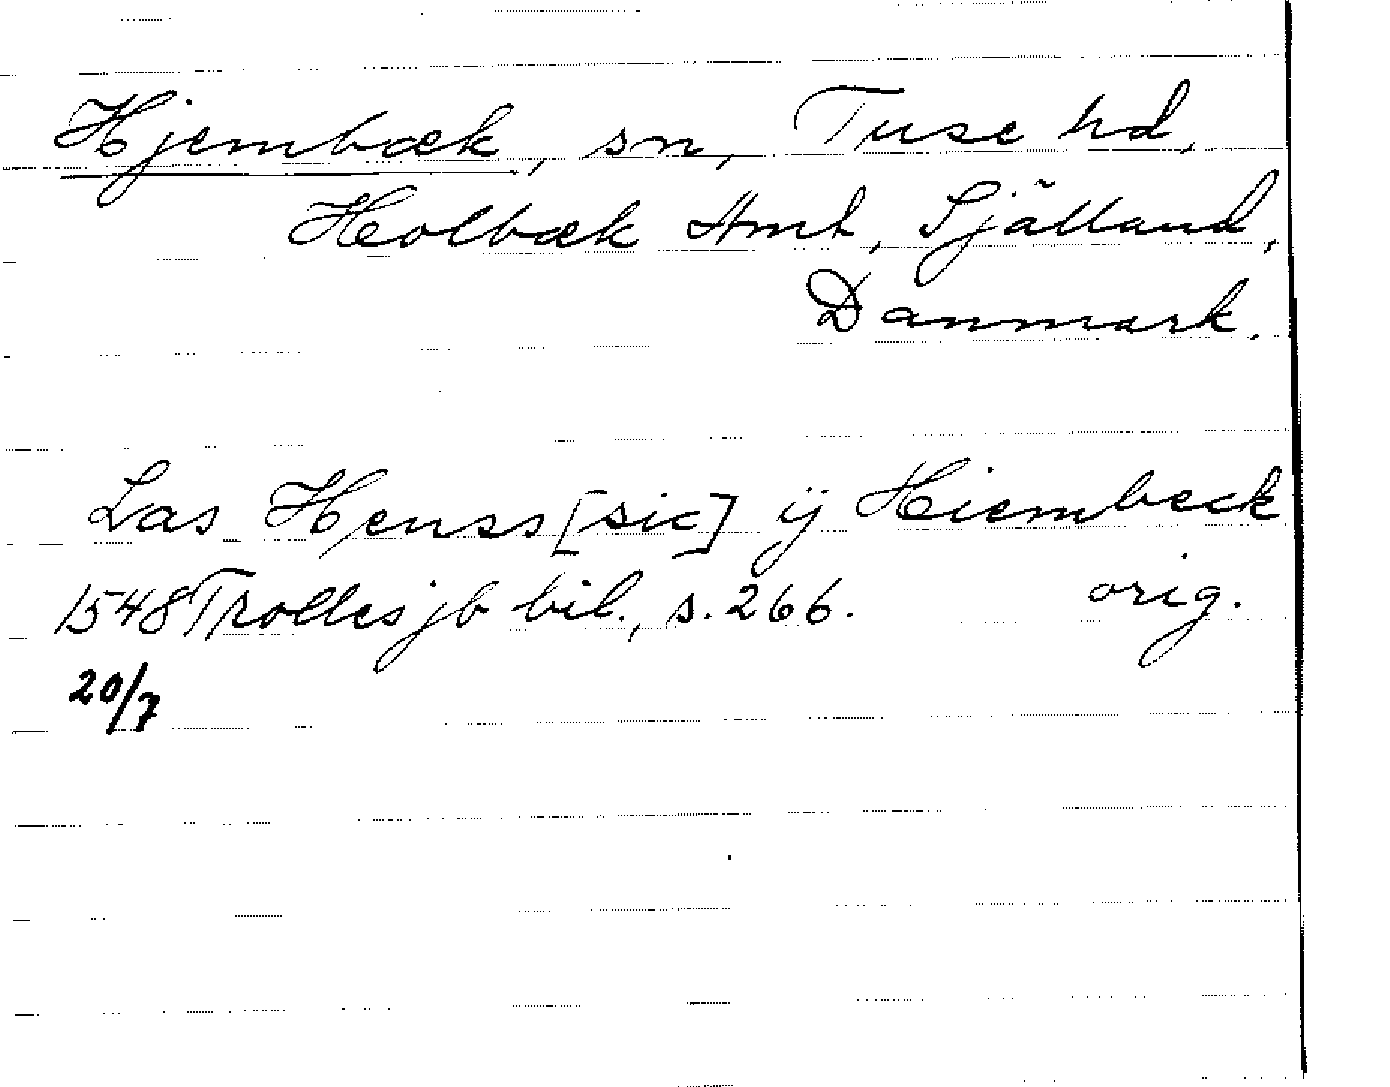 Hjembæk, sn, Tuse hd,
Holbæk Amt, Själland,
Danmark.
Las Henss [sic] ij Hiembeck
1548 Trolles jb bil., s. 266. orig.
20/7